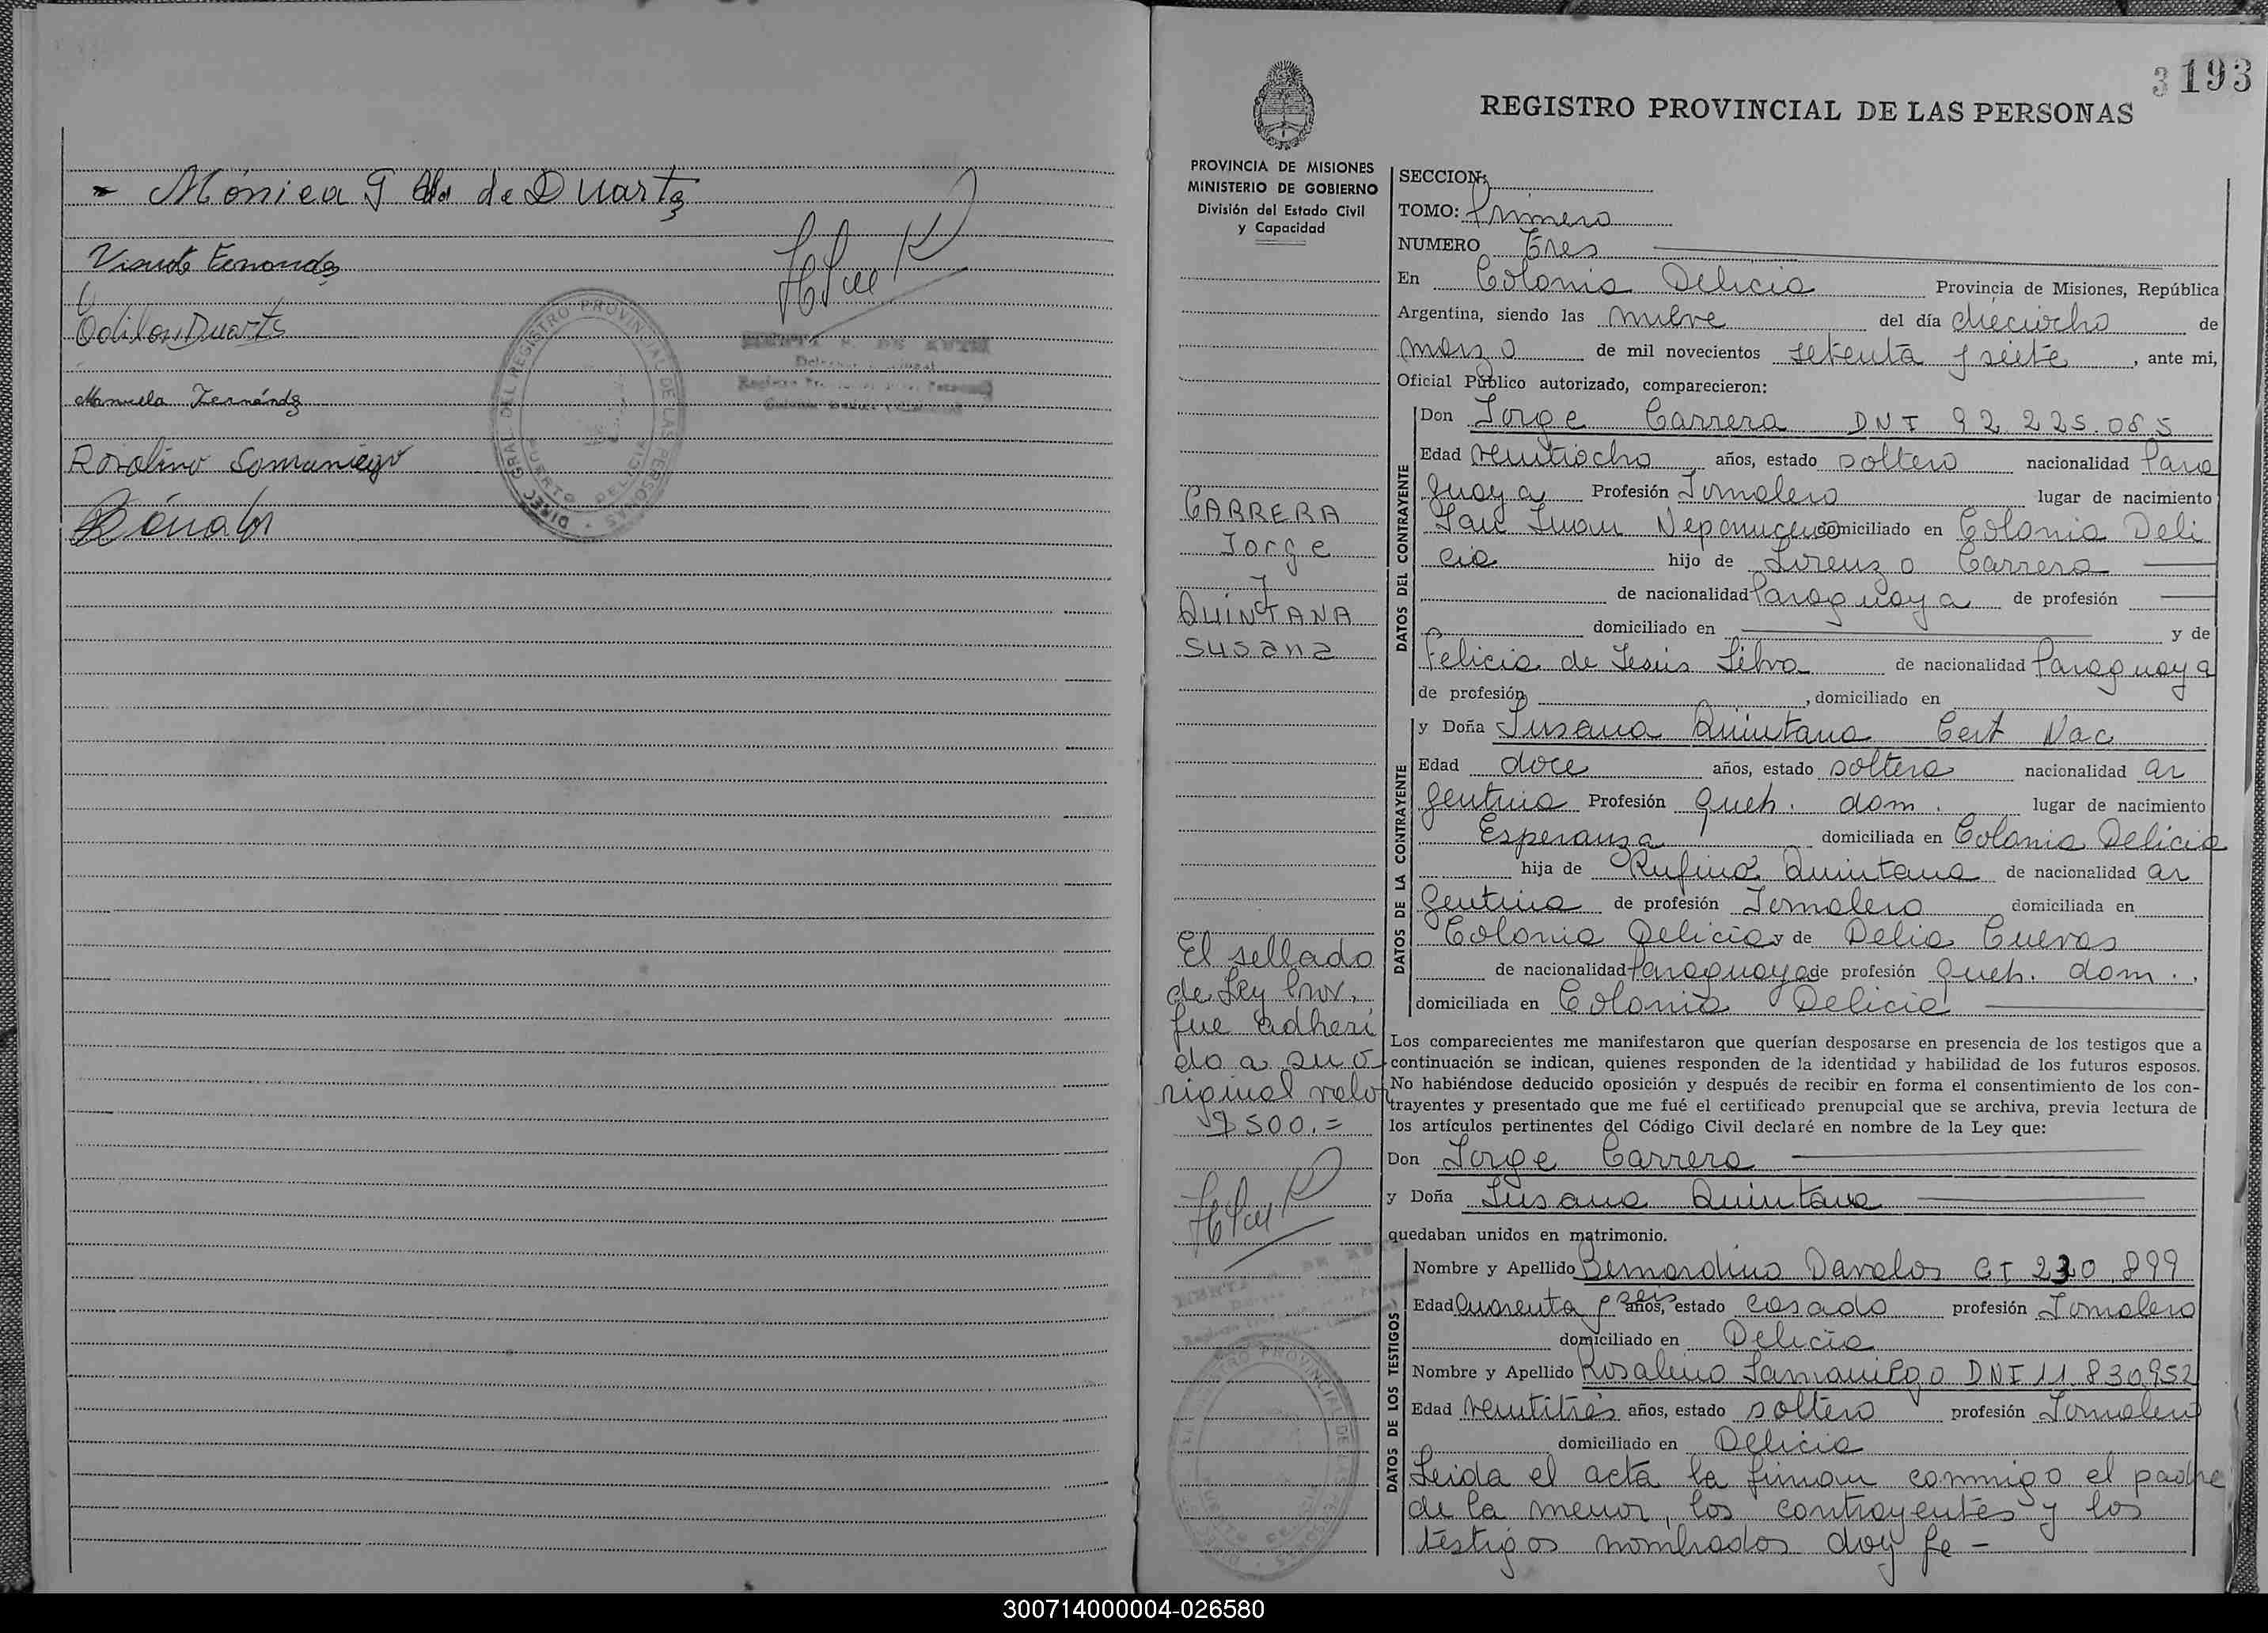 - Mónica G de Duarte
Odilon Duarte
Manuela Fernández
Rosalino Samaniego
DIREC. GRAL. DEL REGISTRO PROVINCIAL DE LAS PERSONAS
PUERTO DELICIA
3 193
REGISTRO PROVINCIAL DE LAS PERSONAS
PROVINCIA DE MISIONES
MINISTERIO DE GOBIERNO
División del Estado Civil
y Capacidad
CARRERA
Jorge
y
QUINTANA
Susana
El sellado
de Ley Prov.
fue adheri
do a su o
riginal valor
$ 500.=
SECCION:
TOMO: Primero
NUMERO Tres
En Colonia Delicia Provincia de Misiones, República
Argentina, siendo las nueve del día dieciocho de
marzo de mil novecientos setenta y siete, ante mi,
Oficial Público autorizado, comparecieron:
DATOS DEL CONTRAYENTE
Don Jorge Carrera DNI 92.225.085
Edad veintiocho años, estado soltero nacionalidad Para
guaya Profesión Jornalero lugar de nacimiento
San Juan Nepomuceno domiciliado en Colonia Deli
cia hijo de Lorenzo Carrera
de nacionalidad Paraguaya de profesión
domiciliado en y de
Felicia de Jesús Silva de nacionalidad Paraguaya
de profesión , domiciliado en
DATOS DE LA CONTRAYENTE
y Doña Susana Quintana Cert Nac
Edad doce años, estado soltera nacionalidad ar
gentina Profesión Queh. dom. lugar de nacimiento
Esperanza domiciliada en Colonia Delicia
hija de Rufino Quintana de nacionalidad ar
gentina de profesión Jornalero domiciliada en
Colonia Delicia y de Delia Cuevas
de nacionalidad Paraguaya de profesión Queh. dom.,
domiciliada en Colonia Delicia
Los comparecientes me manifestaron que querían desposarse en presencia de los testigos que a
continuación se indican, quienes responden de la identidad y habilidad de los futuros esposos.
No habiéndose deducido oposición y después de recibir en forma el consentimiento de los con-
trayentes y presentado que me fué el certificado prenupcial que se archiva, previa lectura de
los artículos pertinentes del Código Civil declaré en nombre de la Ley que:
Don Jorge Carrera
y Doña Susana Quintana
quedaban unidos en matrimonio.
DATOS DE LOS TESTIGOS
Nombre y Apellido Bernardino Davalos CI 230.899
Edad Cuarenta y seis años, estado casado profesión Jornalero
domiciliado en Delicia
Nombre y Apellido Rosalino Samaniego DNI 11.830952
Edad veintitrés años, estado soltero profesión Jornalero
domiciliado en Delicia
Leida el acta la firman conmigo el padre
de la menor, los contrayentes y los
testigos nombrados doy fe -
300714000004-026580